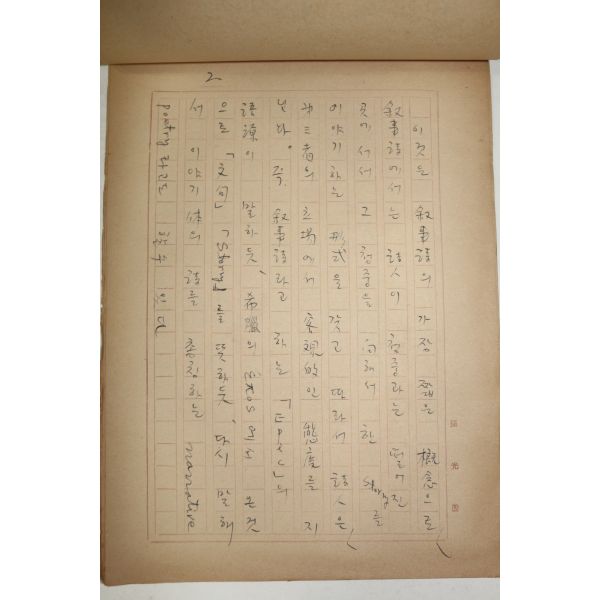 2
이것은 敍事詩의 가장 좁은 槪念으로,
敍事詩에서는 詩人이 청중과는 떨어진
곳에 서서 그 청중을 向해서 한 story를
이야기하는 形式을 갖고 따라서 詩人은,
第三者의 立場에서 客觀的인 態度를 지
닌다. 즉 敍事詩라고 하는 「Epic」의
語源이 말하듯, 希臘의 epos으로 는것
으로 「文句」「Story」를 뜻하듯, 다시 말해
서 이야기 体의 詩를 총칭하는 narrative
poetry라고 할수 있다